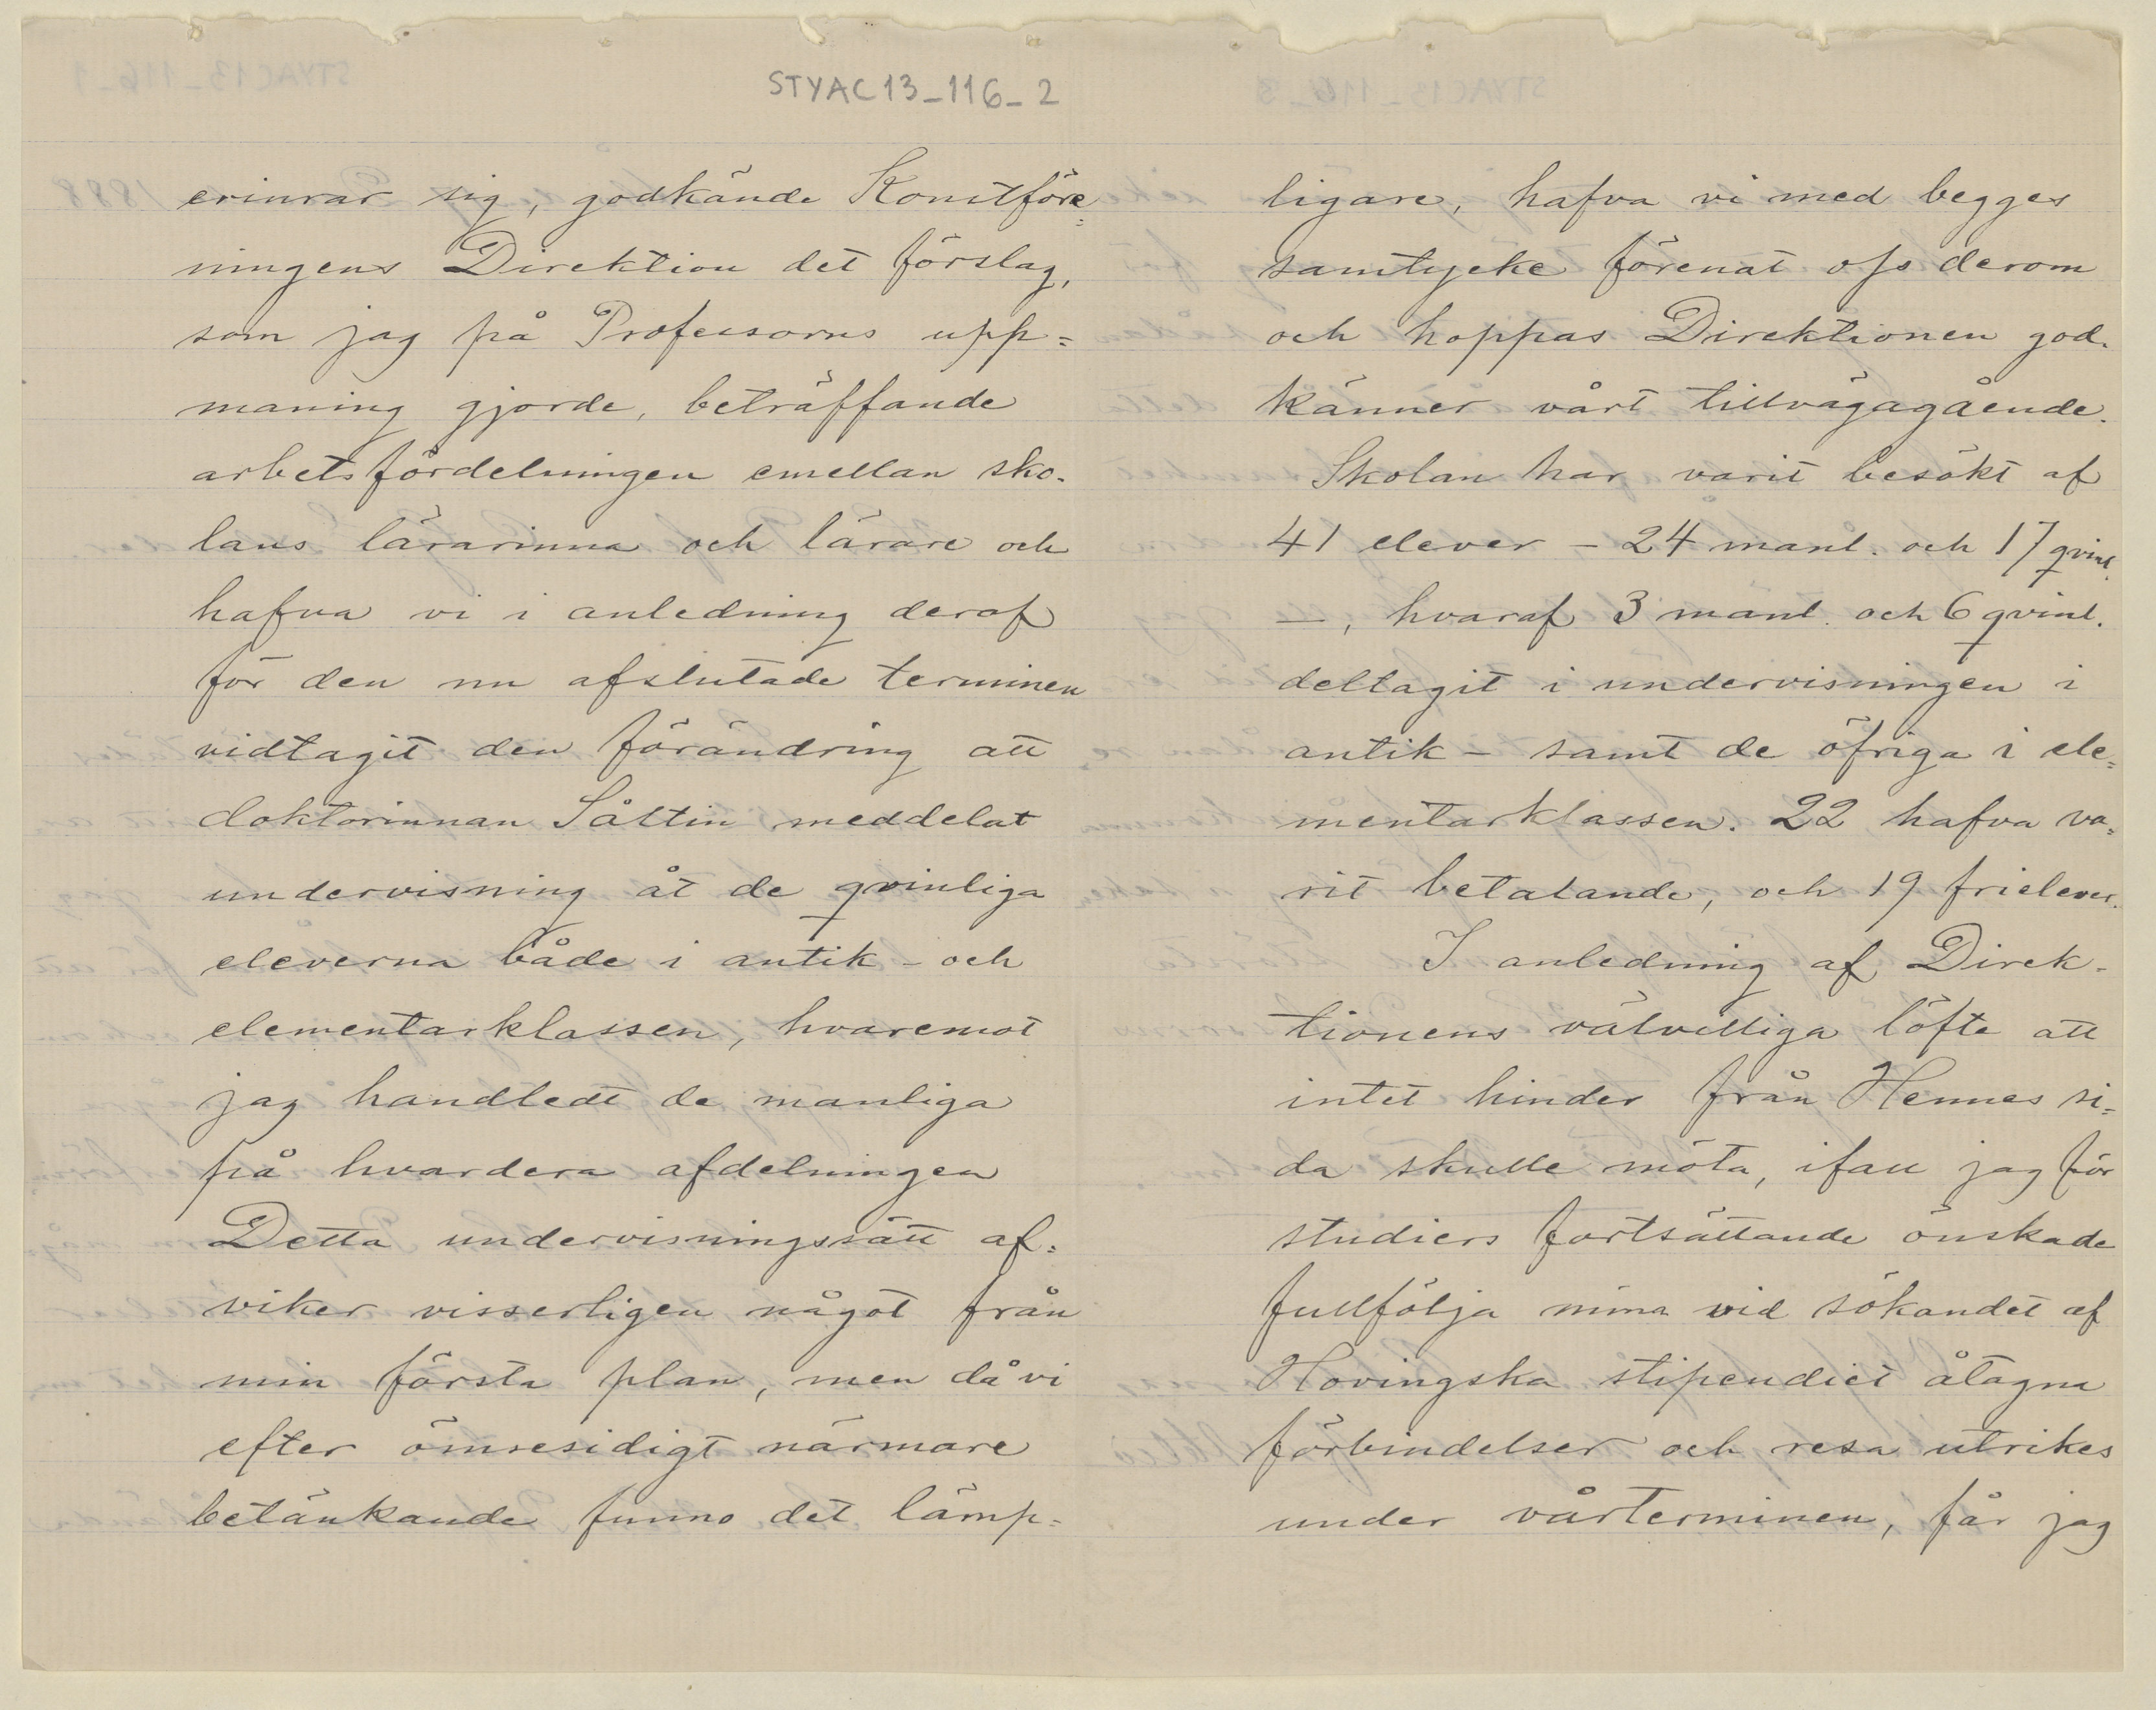 STYAC13_116_2
erinrar sig, godkände Konstföre=
ningens Direktion det förslag,
som jag på Professorns upp=
maning gjorde, beträffande
arbetsfördelningen emellan sko-
lans lärarinna och lärare och
hafva vi i anledning deraf
för den nu afslutade terminen
vidtagit den förändring att
doktorinnan Såltin meddelat
undervisning åt de qvinliga
eleverna både i antik- och
elementarklassen, hvaremot
jag handledt de manliga
på hvardera afdelningen
Detta undervisningssätt af=
viker visserligen något från
min första plan, men då vi
efter ömsesidigt närmare
betänkande funno det lämp=
ligare, hafva vi med begges
samtycke förenat oss derom
och hoppas Direktionen god-
känner vårt tillvägagående.
Skolan har varit besökt af
41 elever - 24 manl. och 17 qvinl.
—, hvaraf 3 manl. och 6 qvinl.
deltagit i undervisningen i
antik- samt de öfriga i ele=
mentarklassen. 22 hafva va=
rit betalande, och 19 frielever.
I anledning af Direk-
tionens välvilliga löfte att
intet hinder från Hennes si=
da skulle möta, ifall jag för
studiers fortsättande önskade
fullfölja mina vid sökandet af
Hovingska stipendiet åtagna
förbindelser och resa utrikes
under vårterminen, får jag